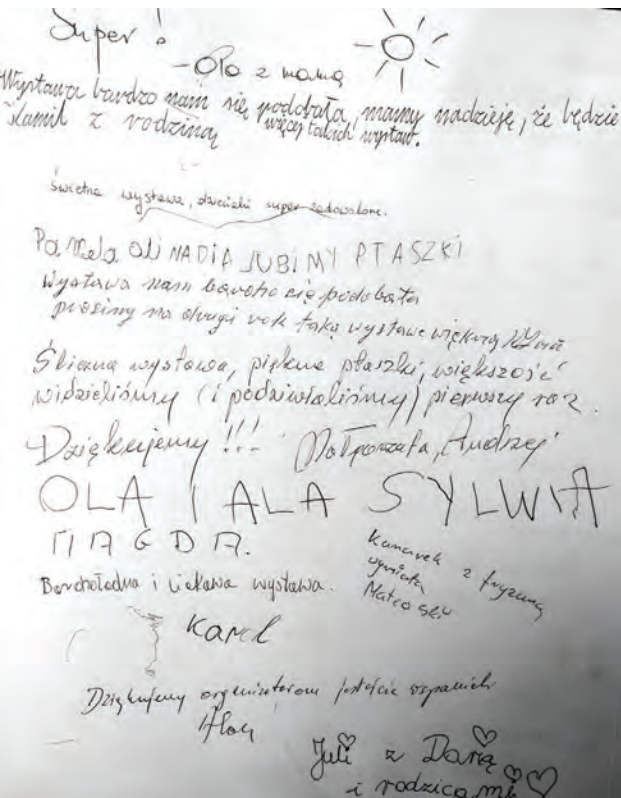 Super!
- Olo z mamą
Wystawa bardzo nam się podobała, mamy nadzieję, że będzie
więcej takich wystaw.
Kamil z rodziną
Świetna wystawa, dzieciaki super zadowolone.
Pamela Oli NADIA LUBIMY PTASZKI
Wystawa nam bardzo się podobała
prosimy na drugi rok taką wystawę większą
Śliczna wystawa, piękne ptaszki, większość
widzieliśmy (i podziwialiśmy) pierwszy raz.
Dziękujemy!!! Małgorzata, Andrzej
OLA I ALA SYLWIA
MAGDA.
Kanarek z fryzurą
wymiata
Bardzo ładna i ciekawa wystawa.
Karol
Dziękujemy organizatorom jesteście wspaniali
Juli z Darią
i rodzicami